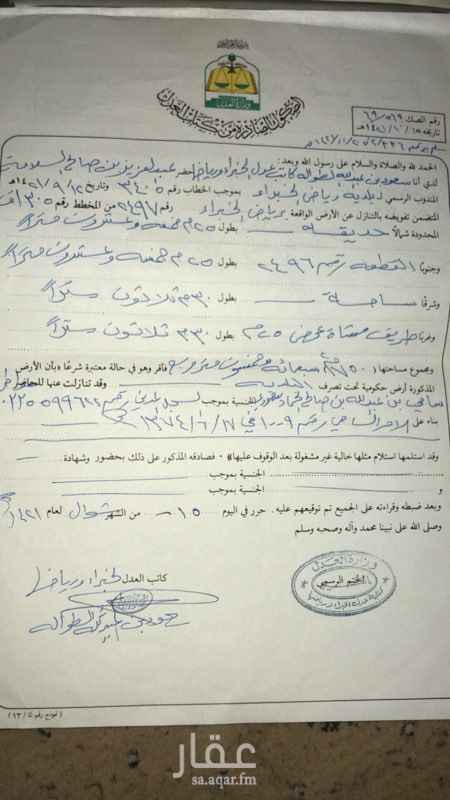 وزارة العدل
صكوك الصادرة من كتابات العدل
رقم الصك
تاريخه
الحمد لله والصلاة والسلام على رسول الله وبعد:
لدي أنا سعود بن عبدالله الطواله كاتب عدل الخبراء ورياض حضر عبدالعزيز بن صالح السلامة
المندوب الرسمي لبلدية رياض الخبراء بموجب الخطاب رقم ٣٤٠٥ وتاريخ ١٤٢١/٩/١٢هـ
المتضمن تفويضه بالتنازل عن الأرض الواقعة برياض الخبراء رقم ٢٤٩٧ من المخطط رقم
المحدودة شمالاً حديقة بطول ٢٥م خمسة وعشرون متراً
وجنوباً القطعة رقم ٢٤٩٦ بطول ٢٥م خمسة وعشرون متراً
وشرقاً ساحة بطول ٣٠م ثلاثون متراً
وغرباً طريق عرض ٢٥م بطول ٣٠م ثلاثون متراً
ومجموع مساحتها ٧٥٠م٢ سبعمائة وخمسون متر مربع فأقر وهو في حالة معتبرة شرعًا «بأن الأرض
المذكورة أرض حكومية تحت تصرف البلدية وقد تنازلت عنها للحاضر
بن عبدالله بن صالح الجنسية بموجب
بناء على الأمر السامي رقم
وقد استلمها استلام مثلها خالية غير مشغولة بعد الوقوف عليها» - فصادقه المذكور على ذلك بحضور وشهادة
الجنسية بموجب
و الجنسية بموجب
وبعد ضبطه وقراءته على الجميع تم توقيعهم عليه. حرر في اليوم ١٥ من الشهر شوال لعام ١٤٢١هـ
وصلى الله على نبينا محمد وآله وصحبه وسلم
كاتب العدل الخبراء ورياض
وزارة العدل
الختم الرسمي
(نموذج رقم
عقار
sa.aqar.fm